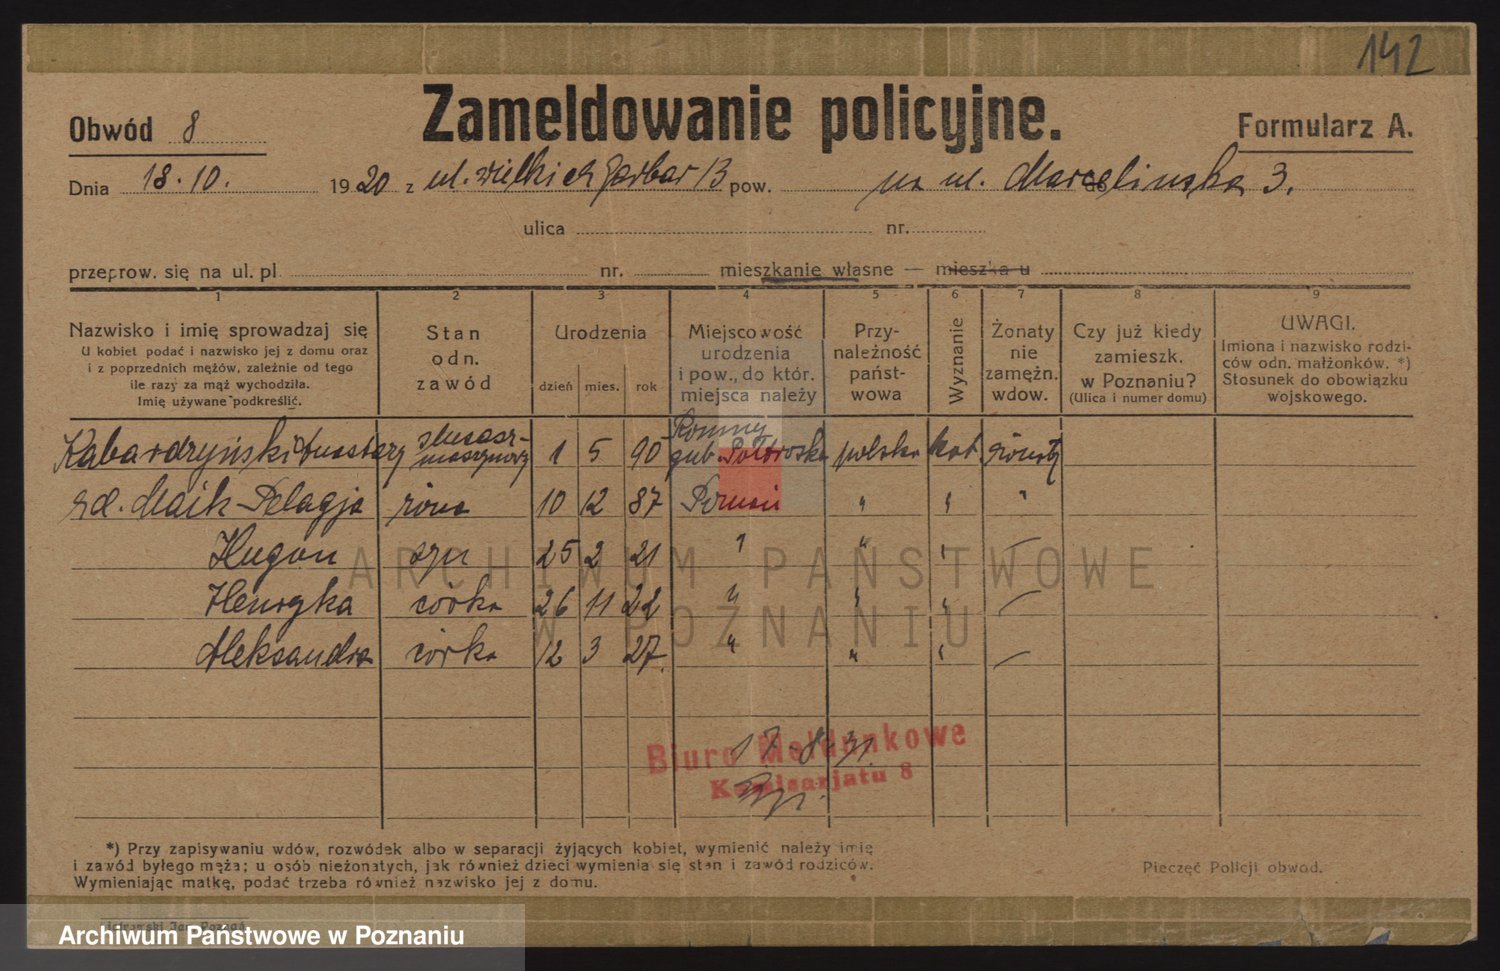 142
Zameldowanie policyjne.
Obwód 8
Formularz A.
Dnia 18.10. 1920 z ul. Wielkich Garbar 13 pow. na ul. Marcelinska 3.
ulica nr.
przeprow. się na ul. pl nr. mieszkanie własne — mieszka u
1 2 3 4 5 6 7 8 9
Nazwisko i imię sprowadzaj się
U kobiet podać i nazwisko jej z domu oraz
i z poprzednich mężów, zależnie od tego
ile razy za mąż wychodziła.
Imię używane podkreślić.
Stan
odn.
zawód
Urodzenia
dzień mies. rok
Miejscowość
urodzenia
i pow., do któr.
miejsca należy
Przy-
należność
państ-
wowa
Wyznanie
Żonaty
nie
zamężn.
wdow.
Czy już kiedy
zamieszk.
w Poznaniu?
(Ulica i numer domu)
UWAGI.
Imiona i nazwisko rodzi-
ców odn. małżonków. *)
Stosunek do obowiązku
wojskowego.
Kabardzyński Anastazy 1 5 90 Romny gub. polska kat żonaty
zd. Maik - Pelagja żona 10 12 87 Poznań " " "
Hugon syn 25 2 21 " " "
Henryka córka 26 11 22 " " "
Aleksandra córka 12 3 27. " " "
ARCHIWUM PAŃSTWOWE
W POZNANIU
Biuro Meldunkowe
17-8-31.
Komisarjatu 8
*) Przy zapisywaniu wdów, rozwódek albo w separacji żyjących kobiet, wymienić należy imię
i zawód byłego męża; u osób nieżonatych, jak również dzieci wymienia się stan i zawód rodziców.
Wymieniając matkę, podać trzeba również nazwisko jej z domu.
Pieczęć Policji obwod.
Archiwum Państwowe w Poznaniu